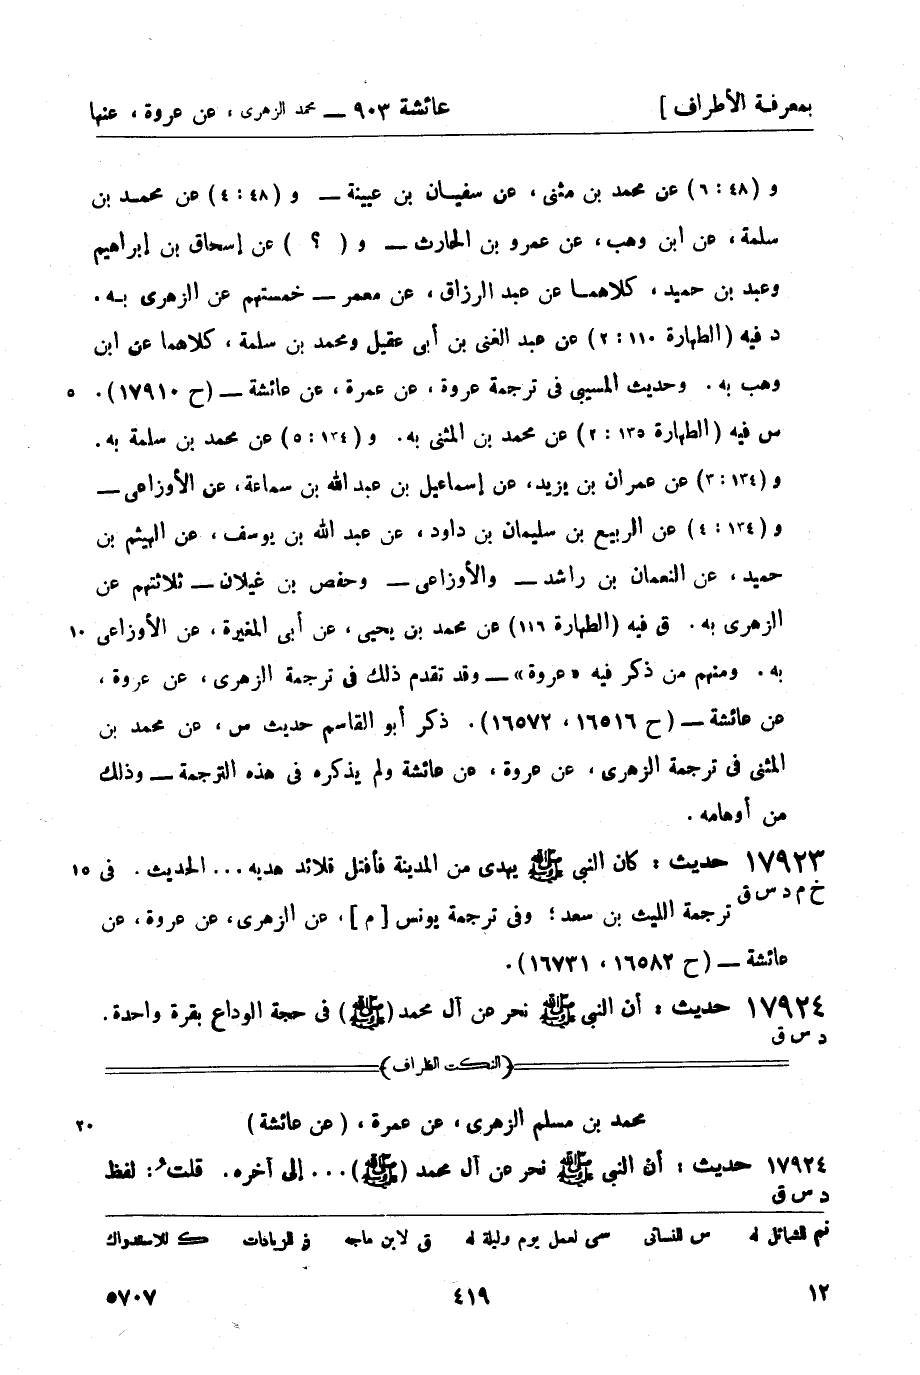 بمعرفة الأطراف ] عائشة ٩٠٣ — محمد الزهرى ، عن عروة ، عنها
و (٤٨ : ٦) عن محمد بن مثنى ، عن سفيان بن عيينة — و (٤٨ : ٤) عن محمد بن
سلمة ، عن ابن وهب ، عن عمرو بن الحارث — و ( ؟ ) عن إسحاق بن إبراهيم
وعبد بن حميد ، كلاهما عن عبد الرزاق ، عن معمر — خمستهم عن الزهرى به .
د فيه (الطهارة ١١٠ : ٢) عن عبد الغنى بن أبى عقيل ومحمد بن سلمة ، كلاهما عن ابن
وهب به . وحديث المسيبى فى ترجمة عروة ، عن عمرة ، عن عائشة — (ح ١٧٩١٠) . ٥
س فيه (الطهارة ١٣٥ : ٢) عن محمد بن المثنى به . و (١٣٤ : ٥) عن محمد بن سلمة به .
و (١٣٤ : ٣) عن عمران بن يزيد ، عن إسماعيل بن عبد الله بن سماعة ، عن الأوزاعى —
و (١٣٤ : ٤) عن الربيع بن سليمان بن داود ، عن عبد الله بن يوسف ، عن الهيثم بن
حميد ، عن النعمان بن راشد — والأوزاعى — وحفص بن غيلان — ثلاثتهم عن
الزهرى به . ق فيه (الطهارة ١١٦) عن محمد بن يحيى ، عن أبى المغيرة ، عن الأوزاعى ١٠
به . ومنهم من ذكر فيه «عروة» — وقد تقدم ذلك فى ترجمة الزهرى ، عن عروة ،
عن عائشة — (ح ١٦٥١٦ ، ١٦٥٧٢) . ذكر أبو القاسم حديث س ، عن محمد بن
المثنى فى ترجمة الزهرى ، عن عروة ، عن عائشة ولم يذكره فى هذه الترجمة — وذلك
من أوهامه .
١٧٩٢٣ حديث : كان النبى ﷺ يهدى من المدينة فأفتل قلائد هديه ... الحديث . فى ١٥
خ م د س ق
ترجمة الليث بن سعد ؛ وفى ترجمة يونس [ م ] ، عن الزهرى ، عن عروة ، عن
عائشة — (ح ١٦٥٨٢ ، ١٦٧٣١) .
١٧٩٢٤ حديث : أن النبى ﷺ نحر عن آل محمد (ﷺ) فى حجة الوداع بقرة واحدة .
د س ق
(النكت الظراف)
محمد بن مسلم الزهرى ، عن عمرة ، ( عن عائشة ) ٢٠
١٧٩٢٤ حديث : أن النبى ﷺ نحر عن آل محمد (ﷺ) ... إلى آخره . قلت : لفظ
د س ق
تم الشمائل له س للنسائى سى لعمل يوم وليلة له ق لابن ماجه ز للزيادات ك للاستدراك
١٢ ٤١٩ ٥٧٠٧